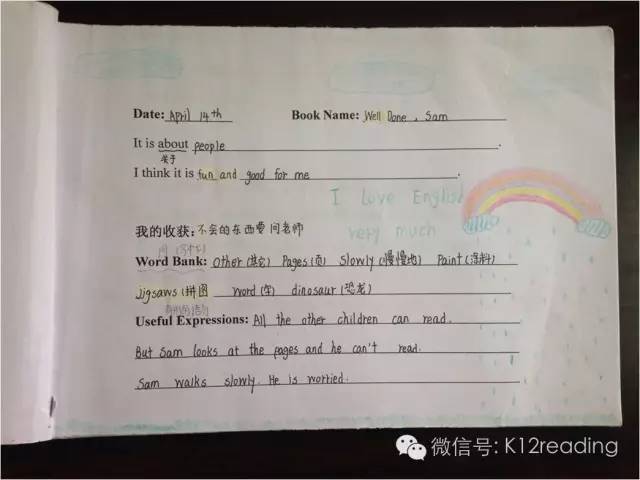 Date: April 14th Book Name: Well Done, Sam
It is about people.
关于
I think it is fun and good for me.
I love English
very much
我的收获: 不会的东西要问老师
Word Bank: Other(其它) Pages(页) Slowly(慢慢地) Paint(涂料)
Jigsaws(拼图 word(字) dinosaur(恐龙)
Useful Expressions: All the other children can read.
But Sam looks at the pages and he can't read.
Sam walks slowly. He is worried.
微信号: K12reading